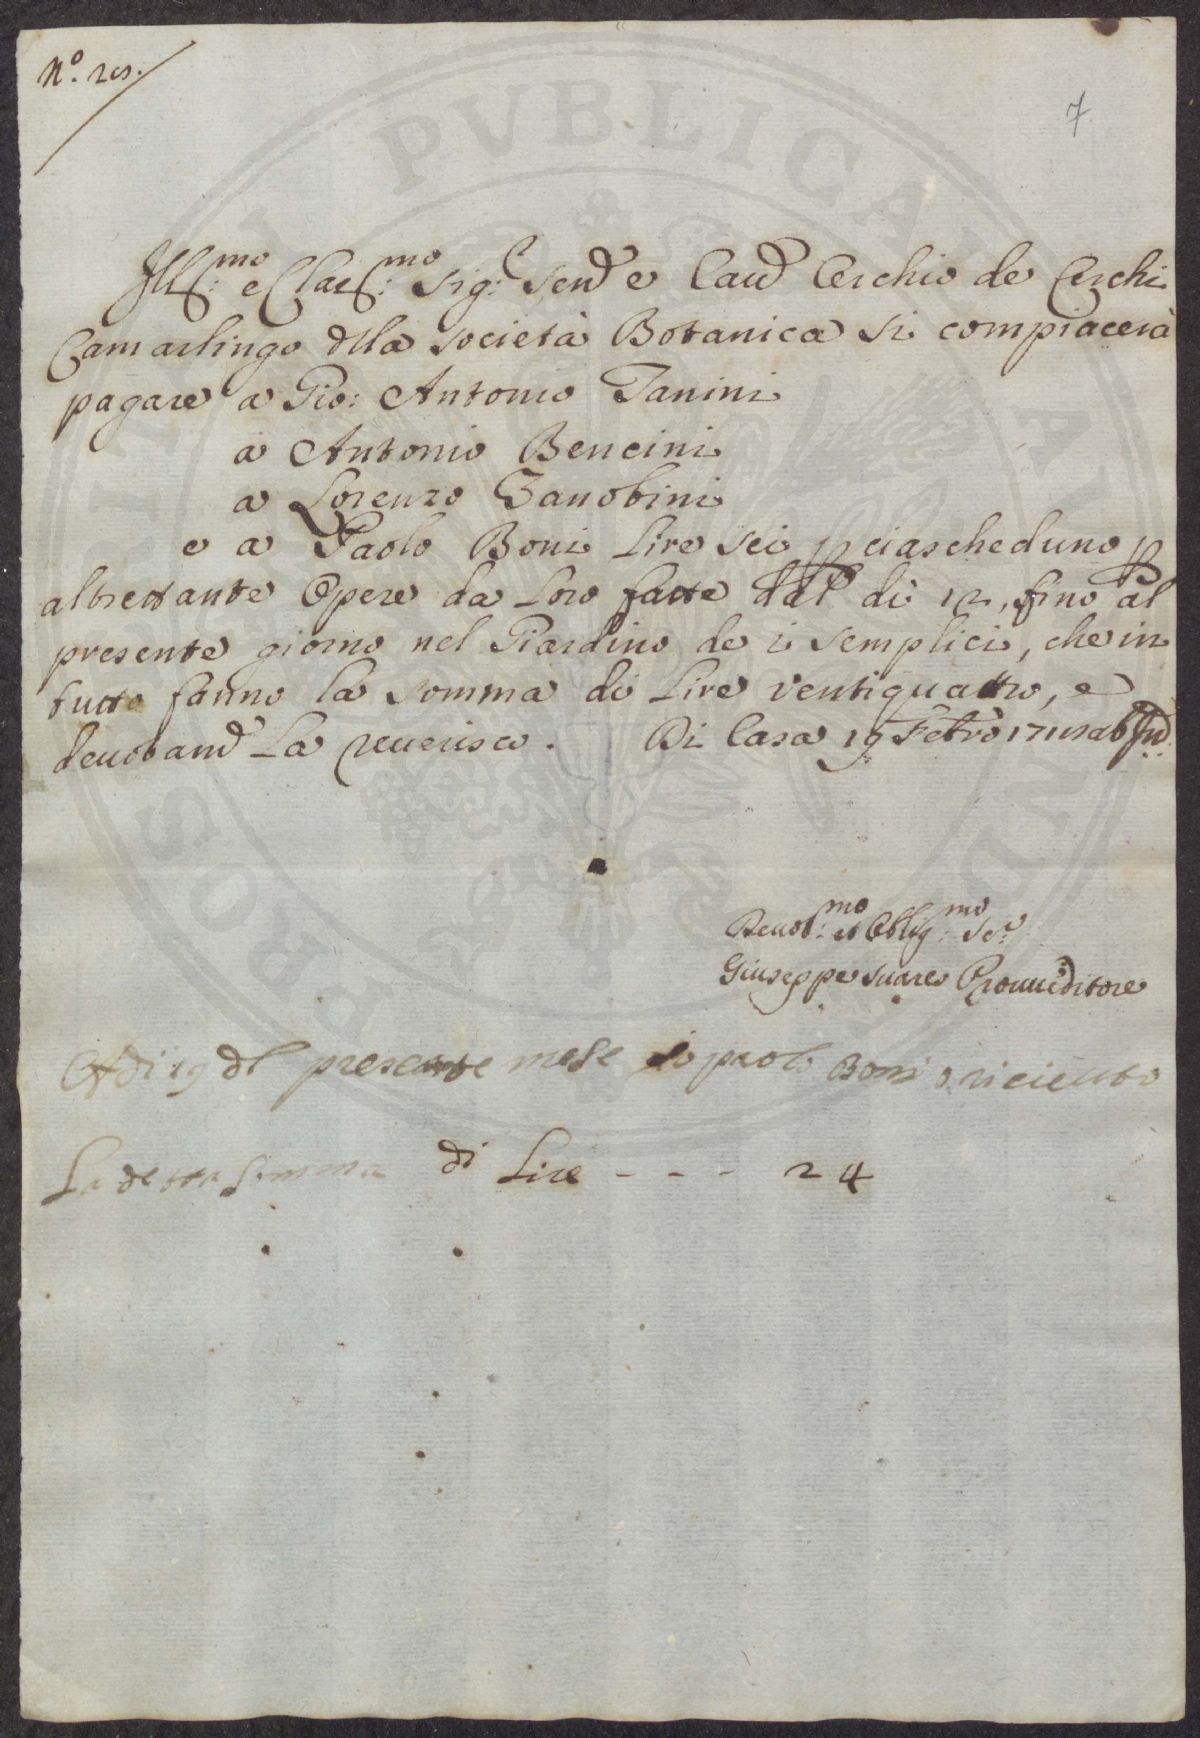 N.º 20.
7
Ill:mo e Clar:mo Sig:r Send e Caud Cerchio de Cerchi
Camarlingo dlla Società Botanica si compiacerà
pagare a Gio: Antonio Tanini
a Antonio Bencini
a Lorenzo Zanobini
e a Paolo Boni Lire sei p ciascheduno p
altrettante Opere da Loro fatte dal dì 12, fino al
presente giorno nel Giardino de i Semplici, che in
tutto fanno la somma di Lire ventiquattro, e
devotamd La reverisco. Di Casa 19 Febro ab
Devot:mo et Oblig:mo Se:e
Giuseppe Suares Provveditore
Adi 19 dl presente mese io paolo Boni o riceuto
La detta somma di Lire - - - 24